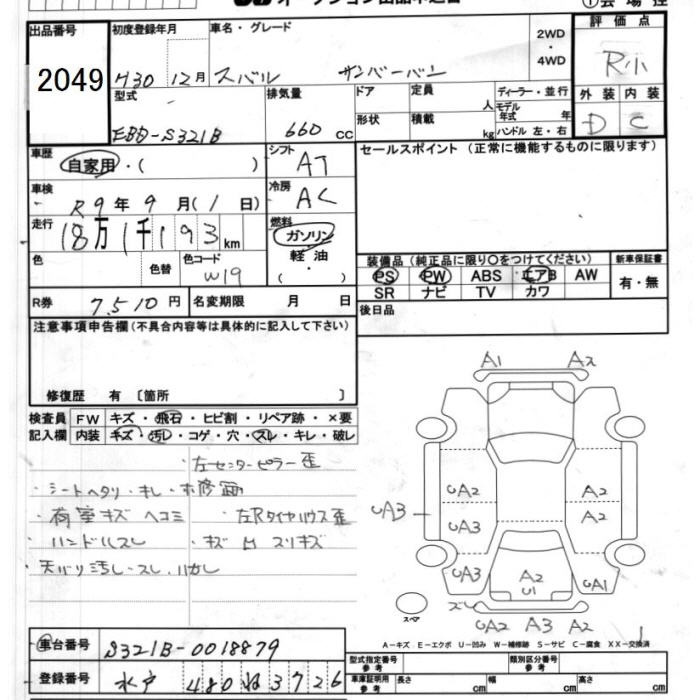 出品番号 初度登録年月 車名・グレード 2WD・4WD 評価点
2049 H30 12月 スバル サンバーバン R小
型式 排気量 ドア 定員 人 ディーラー・並行 外装 内装
EBD-S321B 660 cc 形状 積載 kg モデル年式 年 ハンドル 左・右 D C
車歴 自家用・( ) シフト AT セールスポイント (正常に機能するものに限ります)
車検 R9年9月(1日) 冷房 AC
走行 18万1千193km 燃料 ガソリン 軽油 ・( )
色 色替 色コード W19 装備品(純正品に限り○をつけてください) 新車保証書
PS PW ABS エアB AW 有・無
SR ナビ TV カワ
R券 7,510円 名変期限 月 日 後日品
注意事項申告欄(不具合内容等は具体的に記入して下さい)
修復歴 有 〔箇所 〕
検査員 FW キズ・飛石・ヒビ割・リペア跡・×要
記入欄 内装 キズ・汚レ・コゲ・穴・スレ・キレ・破レ
・左センターピラー歪
・シートヘタリ・キレ・
・荷室キズ ヘコミ ・左Rタイヤハウス歪
・ハンドルスレ ・キズ 凸 スリキズ
天バリ汚レ・スレ・ハガレ
A1 A2
UA2 A2
UA3 UA3 A2
UA3 A2 U1 UA1
スペア スレ UA2 A3 A2
A−キズ E−エクボ U−凹み W−補修跡 S−サビ C−腐食 XX−交換済
車台番号 S321B-0018879
登録番号 水戸 480 ぬ 3726
型式指定番号 参考 類別区分番号 参考
車庫証明用 参考 長さ cm 幅 cm 高さ cm